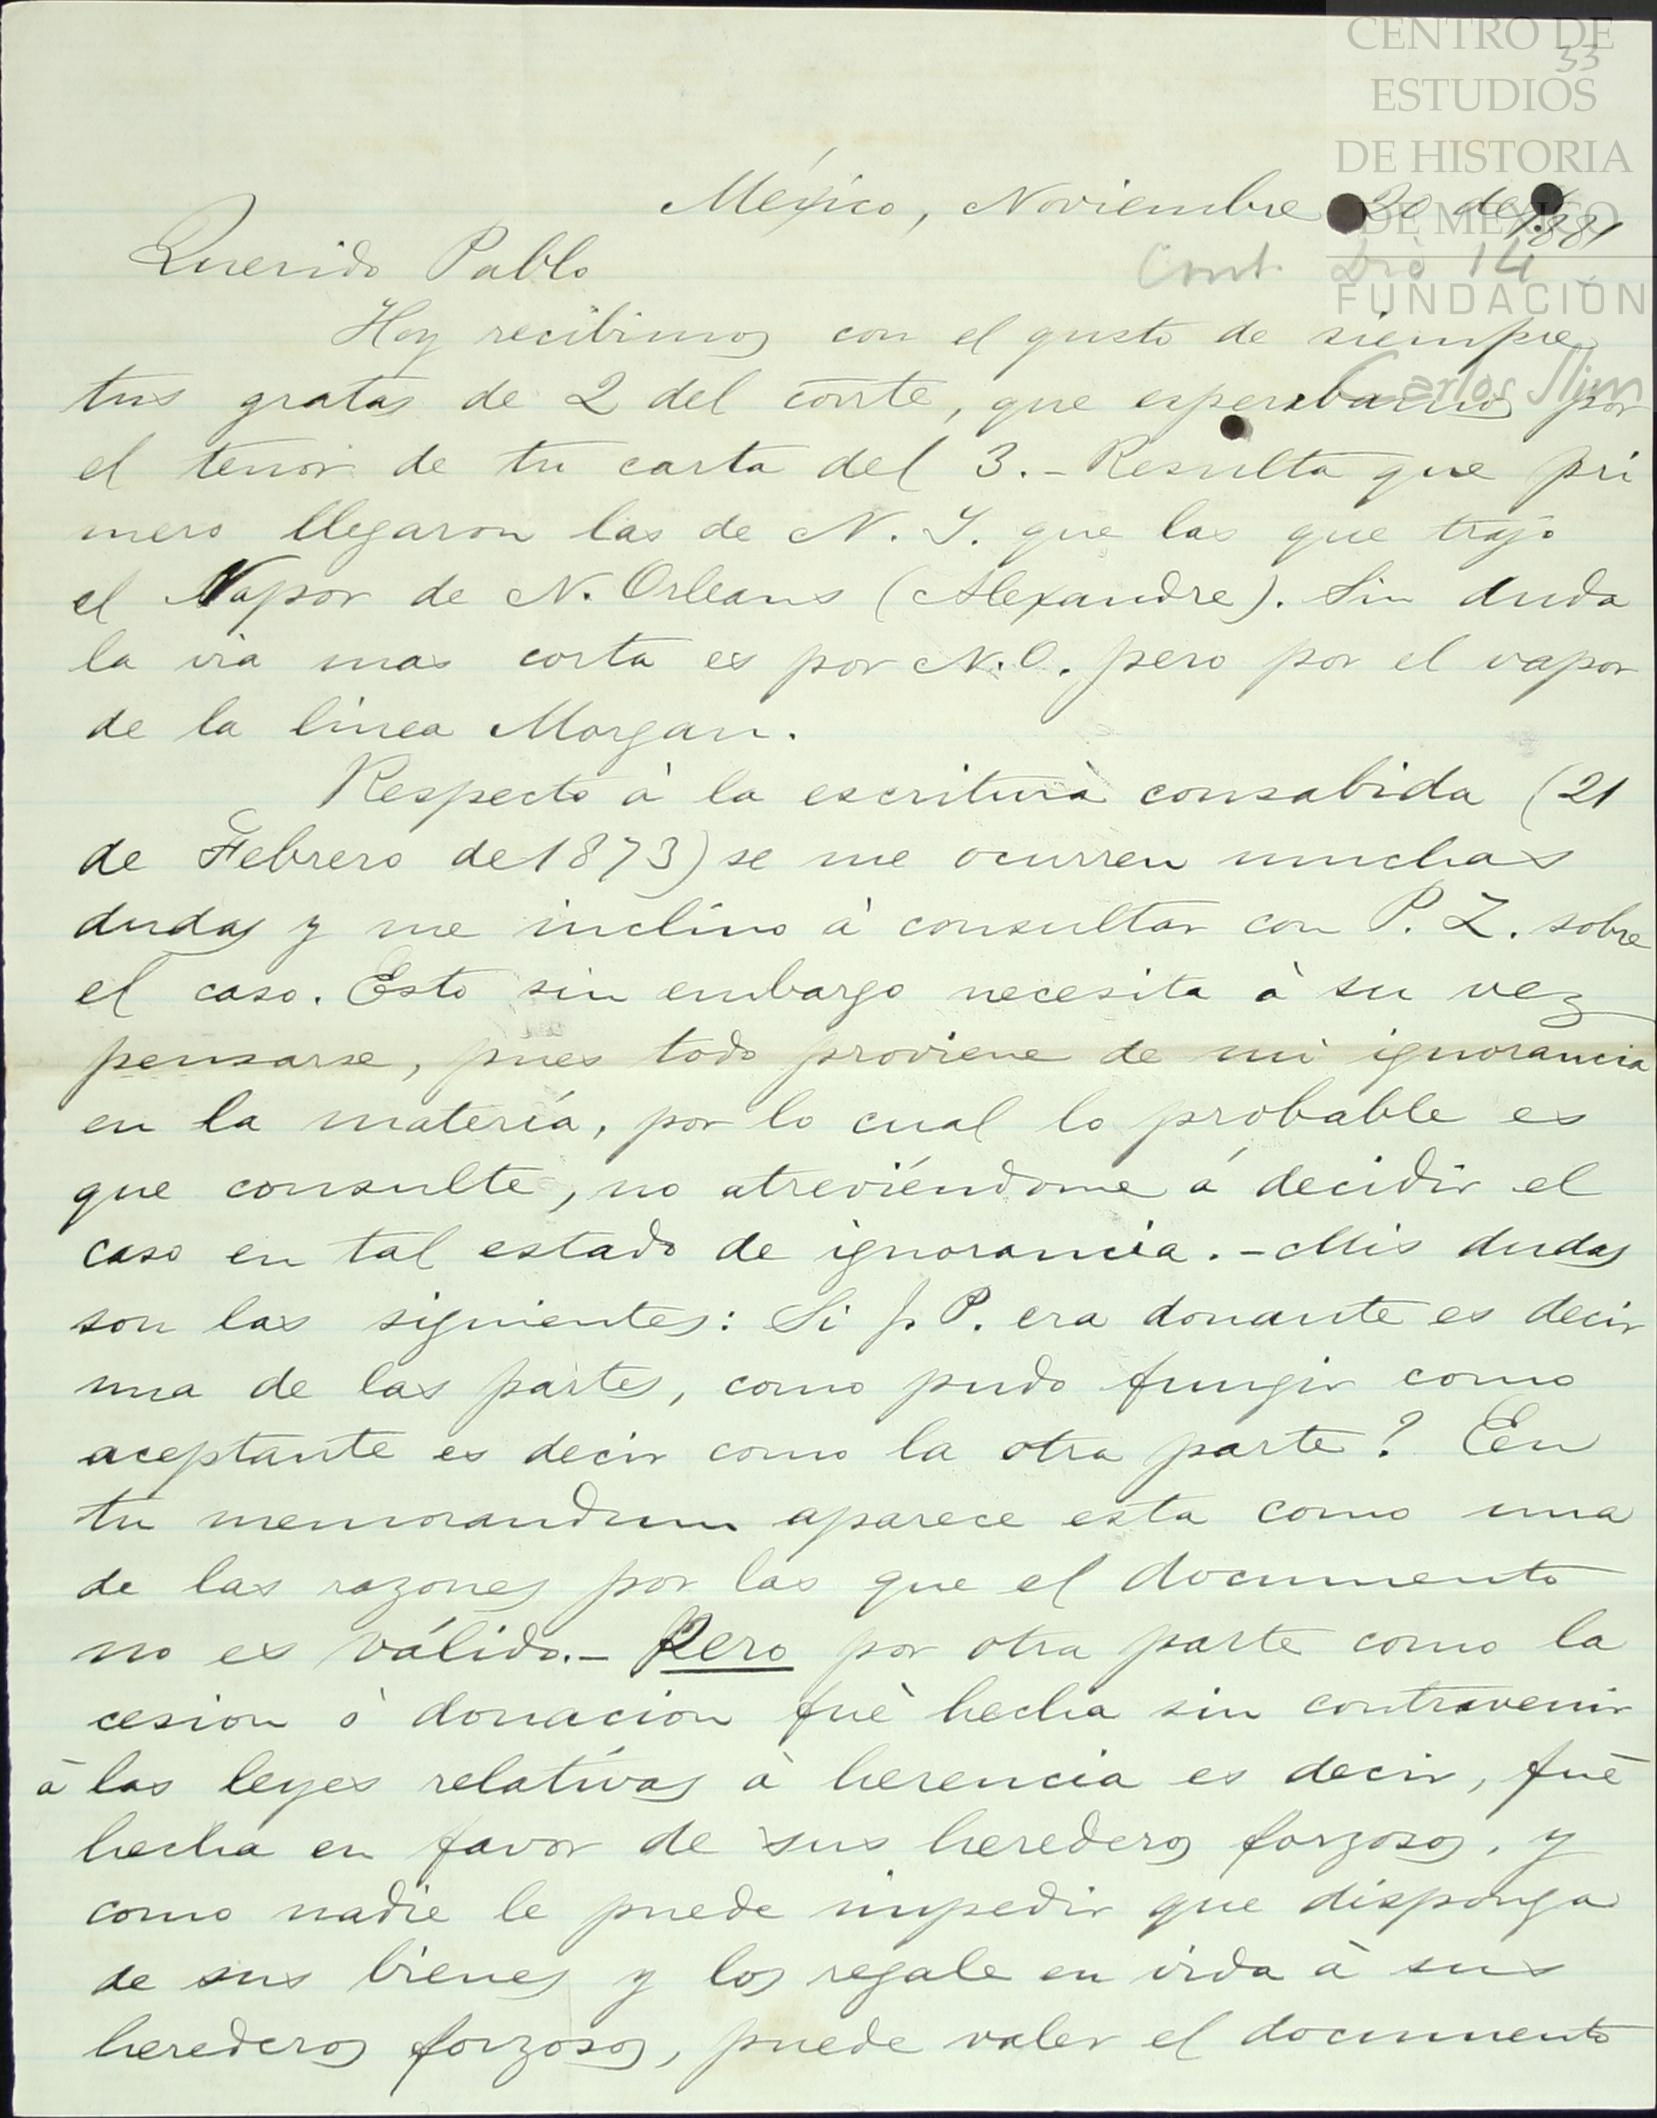 CENTRO DE
33
ESTUDIOS
DE HISTORIA
DE MEXICO
FUNDACIÓN
Carlos Slim
México, Noviembre 20 de 1881
Querido Pablo
Cont. Dic 14
Hoy recibimos con el gusto de siempre
tus gratas de 2 del corrte, que esperabamos por
el tenor de tu carta del 3.- Resulta que pri
mero llegaron las de N. Y. que las que trajo
el Vapor de N. Orleans (Alexandre). Sin duda
la via mas corta es por N.O. pero por el vapor
de la linea Morgan.
Respecto à la escritura consabida (21
de Febrero de 1873) se me ocurren muchas
dudas y me inclino à consultar con P. Z. sobre
el caso. Esto sin embargo necesita à su vez
pensarse, pues todo proviene de mi ignorancia
en la matería, por lo cual lo probable es
que consulte, no atreviéndome á decidir el
caso en tal estado de ignorancia.- Mis dudas
son las siguientes: Si p. P. era donante es decir
una de las partes, como pudo fungir como
aceptante es decir como la otra parte? En
tu memorandum aparece esta como una
de las razones por las que el documento
no es válido.- Pero por otra parte como la
cesion ò donacion fuè hecha sin contravenir
à las leyes relativas à herencia es decir, fuè
hecha en favor de sus herederos forzosos, y
como nadie le puede impedir que disponga
de sus bienes y los regale en vida à sus
herederos forzosos, puede valer el documento